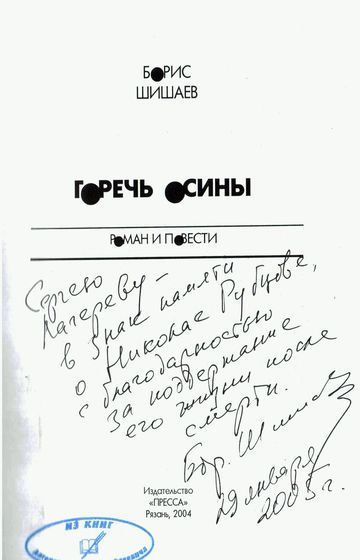 БОРИС
ШИШАЕВ
ГОРЕЧЬ ОСИНЫ
РОМАН И ПОВЕСТИ
Сергею
Лагереву –
в знак памяти
о Николае Рубцове,
с благодарностью
за поддержание
его жизни после
смерти.
Бор. Шишаев
29 января
2005 г.
Издательство
«ПРЕССА»
Рязань, 2004
ИЗ КНИГ